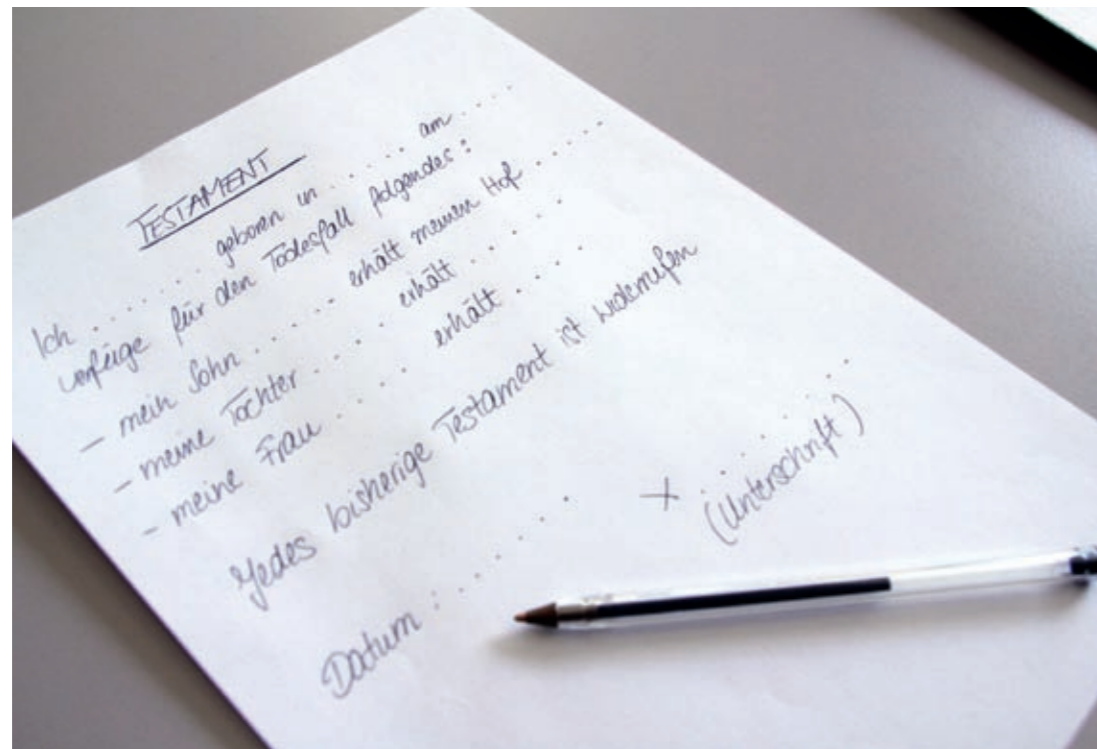 TESTAMENT
Ich ........ geboren in ...... am ....
verfüge für den Todesfall folgendes:
- mein Sohn ........ erhält meinen Hof .....
- meine Tochter ..... erhält .....
- meine Frau ...... erhält ....
Jedes bisherige Testament ist widerrufen
Datum ........ x ........
(Unterschrift)